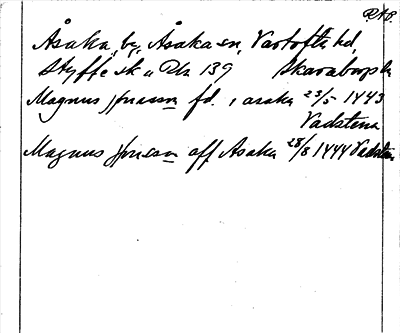 Åsaka, by, Åsaka sn, Vartofta hd,
Styffe sk u Un 139 Skaraborgs
Magnus Jönsson fd. i asaka 23/5 1443
Vadstena
Magnus Jönsson aff Asaka 28/8 1444 Vadstena